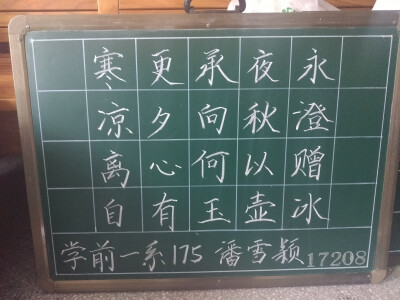 寒更承夜永
凉夕向秋澄
离心何以赠
自有玉壶冰
学前一系175 潘雪颖 17208